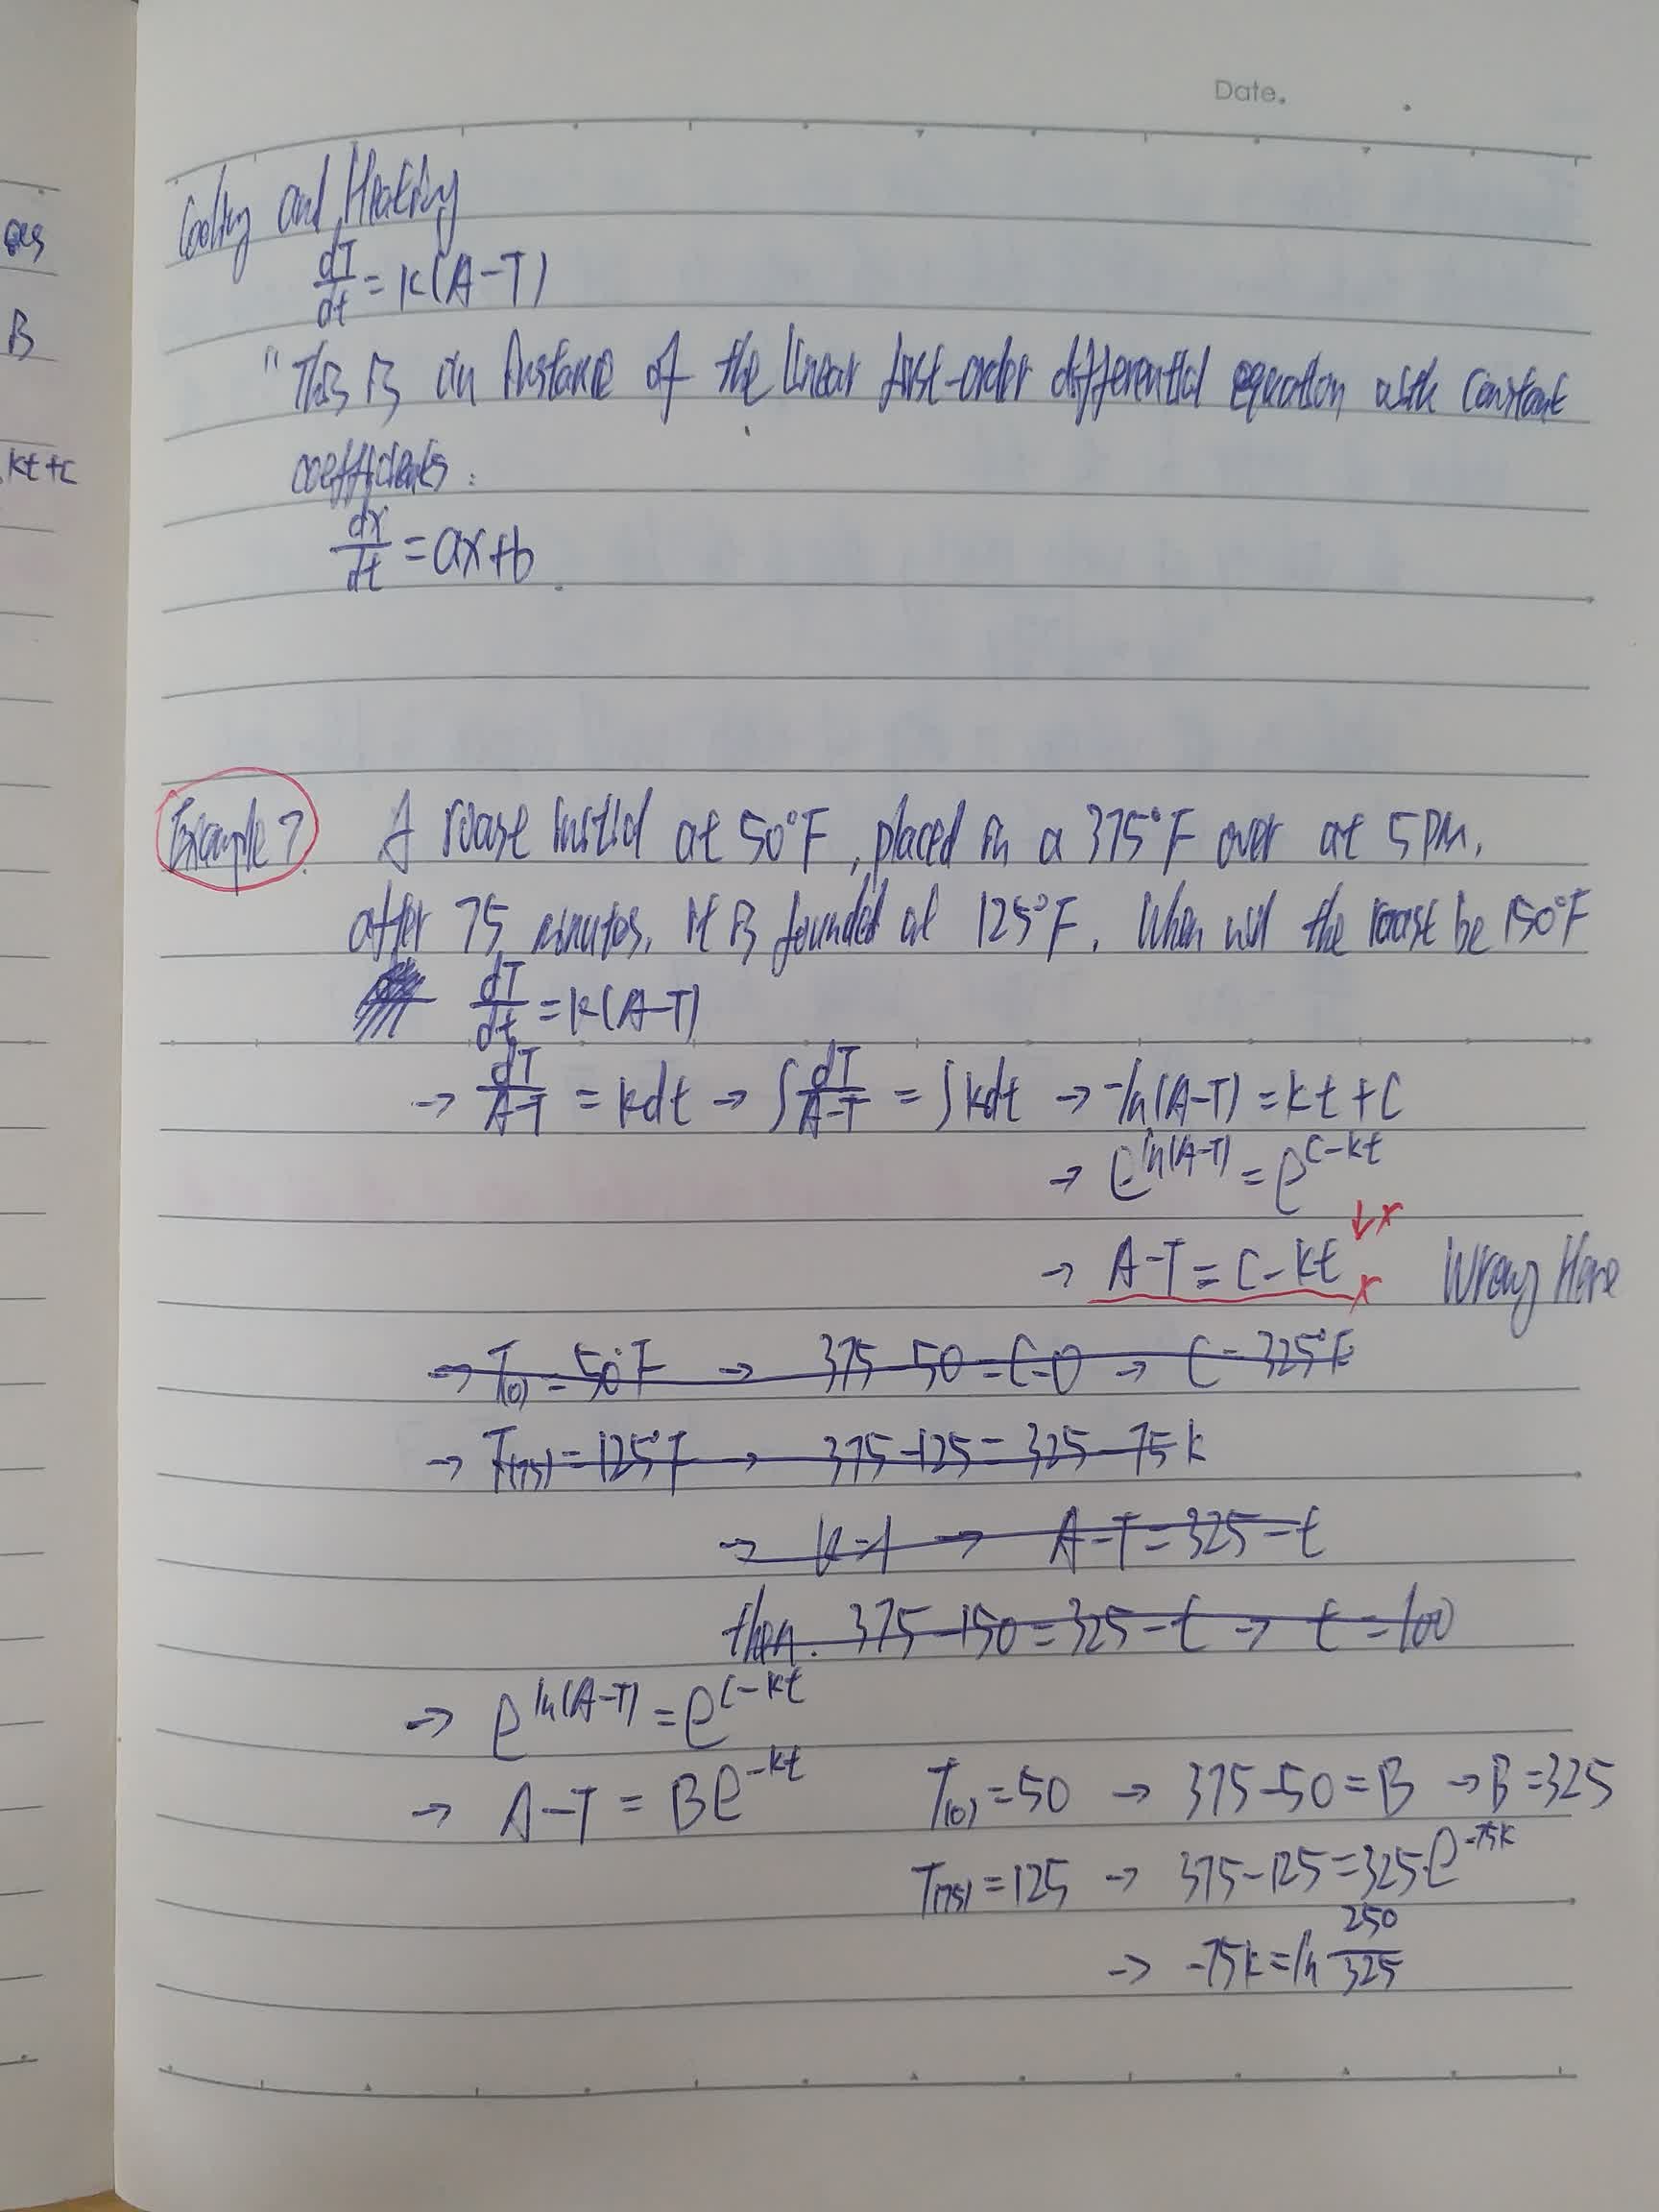 Date.
Cooling and Heating
dT/dt = k(A-T)
"This is an instance of the linear first-order differential equation with constant
coefficients:
dx/dt = ax+b
Example 7. A roast initial at 50°F, placed in a 375°F over at 5 PM.
after 75 minutes, it is founded at 125°F. When will the roast be 150°F
dT/dt = k(A-T)
→ dT/A-T = kdt → ∫dT/A-T = ∫kdt → -ln(A-T) = kt+C
→ e^ln(A-T) = e^C-kt
↓x
→ A-T = C-kt x Wrong Here
→ T(0) = 50°F → 375-50 = C-0 → C = 325°F
→ T(75) = 125°F → 375-125 = 325-75k
→ k=1 → A-T = 325-t
then. 375-150 = 325-t → t = 100
→ e^ln(A-T) = e^C-kt
→ A-T = Be^-kt T(0) = 50 → 375-50 = B → B = 325
T(75) = 125 → 375-125 = 325e^-75k
→ -75k = ln 250/325
ges
B
kt+c